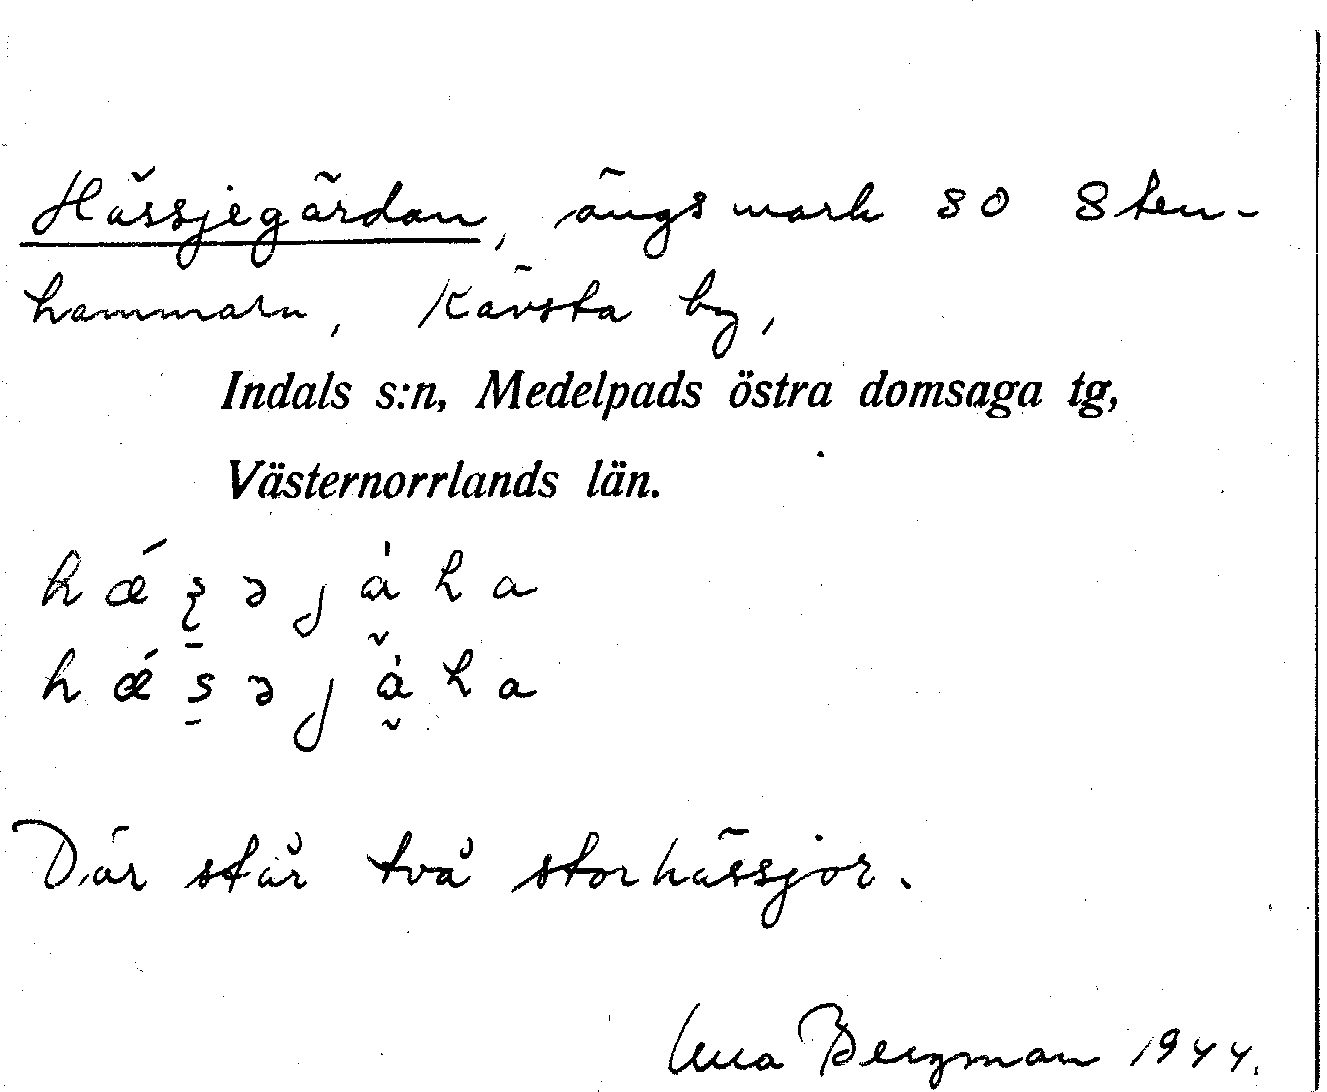 Hässjegärdan, ängsmark SO Sten-
hammarn, Kävsta by,
Indals s:n, Medelpads östra domsaga tg,
Västernorrlands län.
hǽʂəjàha
hǽsəjàha
Där står två storhässjor.
Bergman 1944.